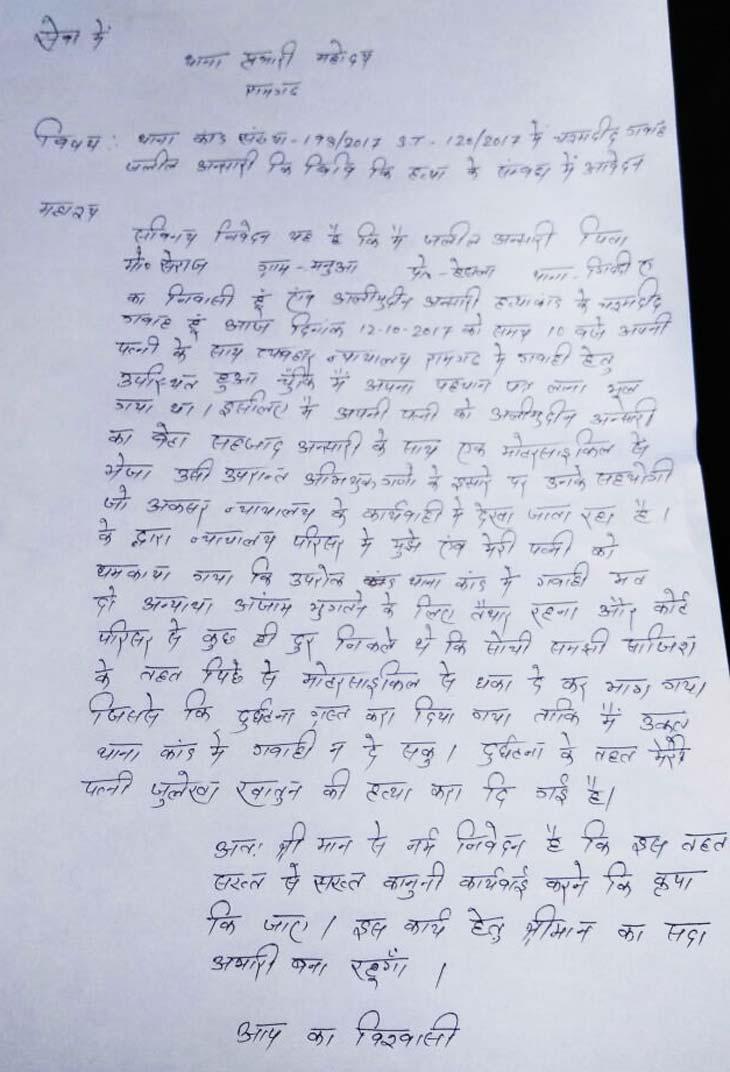 सेवा में
थाना प्रभारी महोदय
रामगढ
विषय : थाना कांड संख्या - 198/2017 ST - 120/2017 में चश्मदीद गवाह
जलील अन्सारी कि बिवि कि हत्या के संबंध में आवेदन
महाशय
सविनय निवेदन यह है कि मैं जलील अन्सारी पिता
मो० सेराज ग्राम - मनुआ पो० - हेसला थाना -
का निवासी हूं एवं अलीमुद्दीन अन्सारी हत्याकांड के चश्मदीद
गवाह हूं आज दिनांक 12-10-2017 को समय 10 बजे अपनी
पत्नी के साथ व्यवहार न्यायालय रामगढ में गवाही हेतु
उपस्थित हुआ चुँकि मैं अपना पहचान पत्र लाना भूल
गया था। इसीलिए मै अपनी पत्नी को अलीमुद्दीन अन्सारी
का बेटा सहजाद अन्सारी के साथ एक मोटरसाइकिल से
भेजा उसी उपरान्त अभियुक्तगणो के इसारे पर उनके सहयोगी
जो अकसर न्यायालय के कार्यवाही मे देखा जाता रहा है।
के द्वारा न्यायालय परिसर मे मुझे एंव मेरी पत्नी को
धमकाया गया कि उपरोक्त थाना कांड मे गवाही मत
दो अन्याथा अंजाम भुगतने के लिए तैयार रहना और कोर्ट
परिसर से कुछ ही दुर निकले थे कि सोची समझी साजिश
के तहत पिछे से मोटरसाइकिल से धका दे कर भाग गया।
जिससे कि दुर्घटना ग्रस्त करा दिया गया ताकि मैं उक्त
थाना कांड मे गवाही न दे सकु। दुर्घटना के तहत मेरी
पत्नी जुलेखा खातुन की हत्या करा दि गई है।
अतः श्री मान से नर्म निवेदन है कि इस तहत
सख्त से सख्त कानुनी कार्यवाई करने कि कृपा
कि जाए। इस कार्य हेतु श्रीमान का सदा
अभारी बना रहूगाँ।
आप का विश्वासी